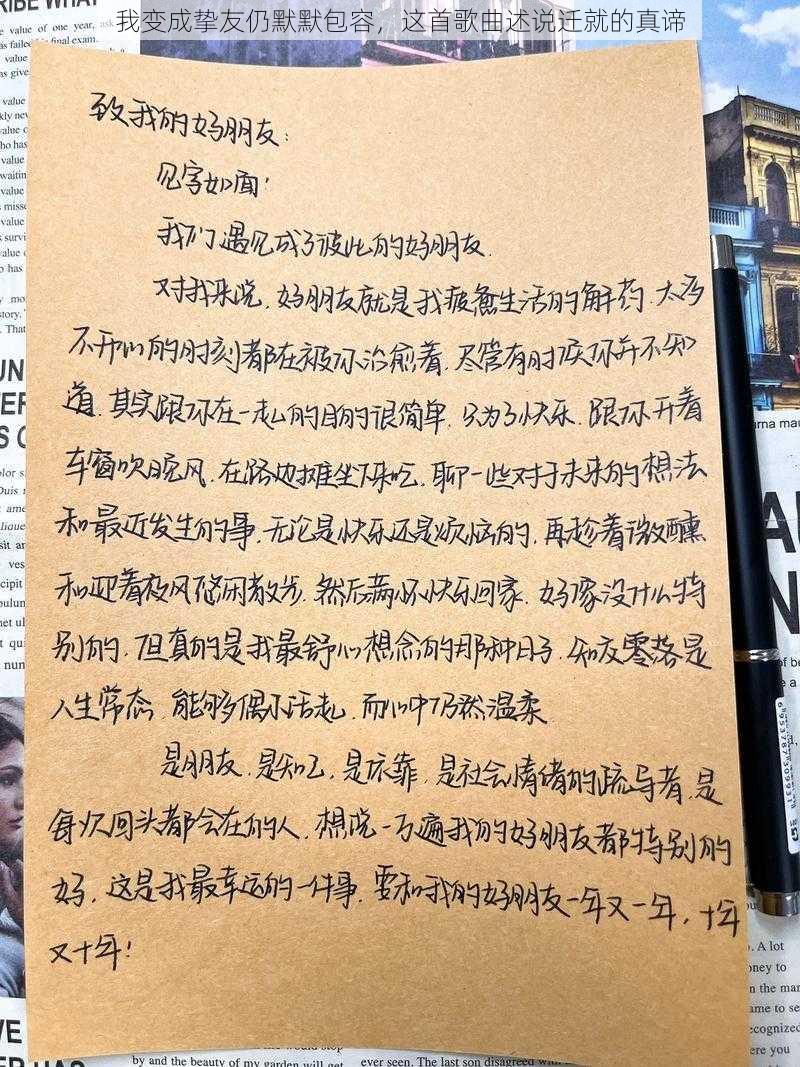 我变成挚友仍默默包容，这首歌曲述说迁就的真谛
致我的好朋友:
见字如面!
我们遇见成了彼此的好朋友.
对我来说, 好朋友就是我疲惫生活的解药. 太多
不开心的时刻都在被你治愈着. 尽管有时候你并不知
道. 其实跟你在一起的目的很简单, 只为了快乐. 跟你开着
车窗吹晚风. 在路边摊坐下来吃, 聊一些对于未来的想法
和最近发生的事, 无论是快乐还是烦恼的, 再趁着微醺
和迎着夜风悠闲散步. 然后满怀快乐回家. 好像没什么特
别的, 但真的是我最舒心想念的那种日子. 知交零落是
人生常态, 能够偶尔话起, 而心中仍然温柔
是朋友, 是知己, 是依靠, 是社会情绪的疏导者, 是
每次回头都会在的人, 想说一万遍我的好朋友都特别的
好, 这是我最幸运的一件事, 要和我的好朋友一年又一年, 十年
又十年!
RIBE WHAT
final exam.
A lot
by and the beauty of my garden will get
ever seen. The last son disagreed